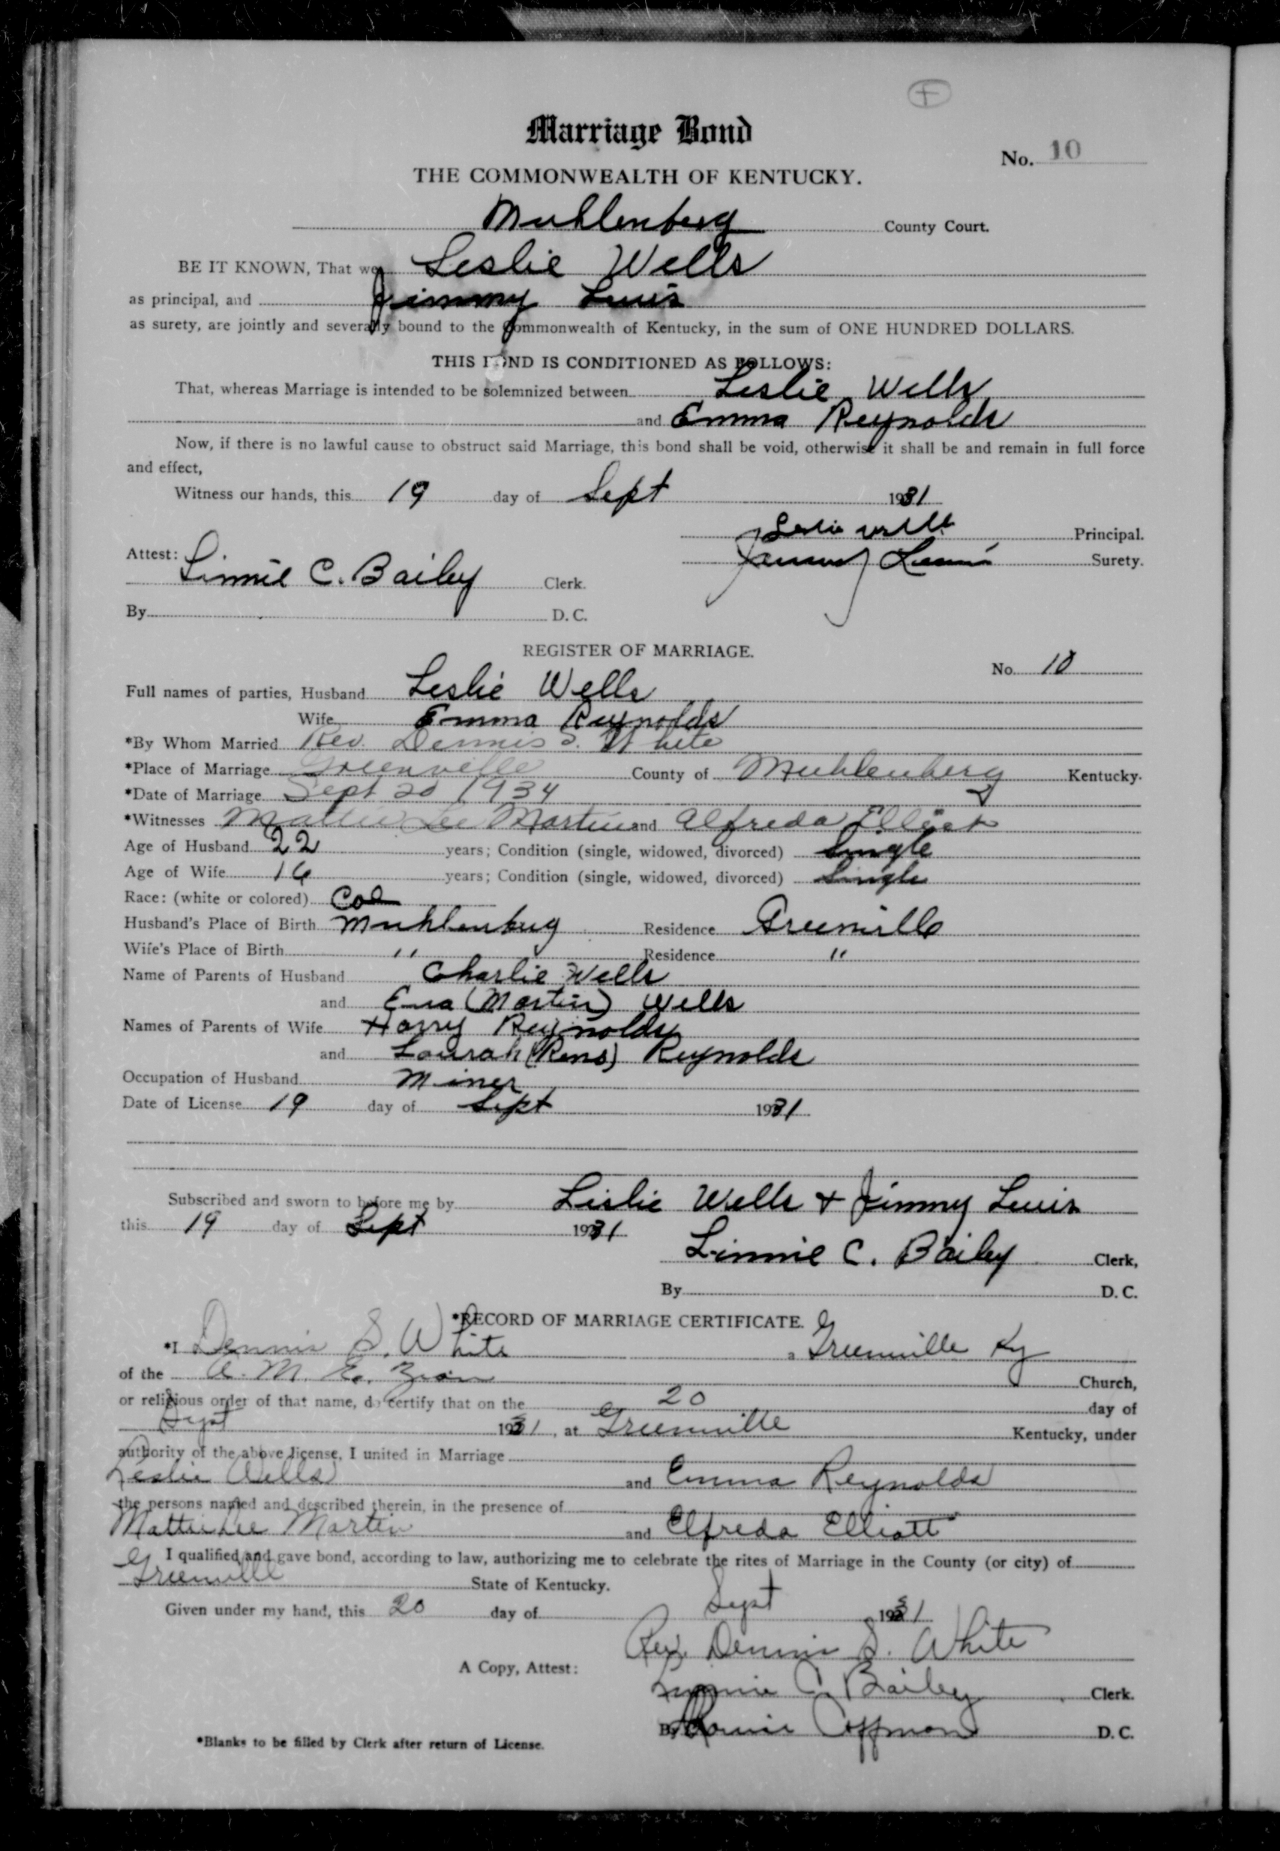 F
Marriage Bond
No. 10
THE COMMONWEALTH OF KENTUCKY.
Muhlenberg County Court.
BE IT KNOWN, That we Leslie Wells
as principal, and Jimmy Lewis
as surety, are jointly and severally bound to the Commonwealth of Kentucky, in the sum of ONE HUNDRED DOLLARS.
THIS BOND IS CONDITIONED AS FOLLOWS:
That, whereas Marriage is intended to be solemnized between Leslie Wells
and Emma Reynolds
Now, if there is no lawful cause to obstruct said Marriage, this bond shall be void, otherwise it shall be and remain in full force
and effect,
Witness our hands, this 19 day of Sept 1931
Leslie Wells Principal.
Attest: Jimmy Lewis Surety.
Linnie C. Bailey Clerk.
By D. C.
REGISTER OF MARRIAGE.
No. 10
Full names of parties, Husband Leslie Wells
Wife Emma Reynolds
*By Whom Married Rev. Dennis S. White
*Place of Marriage Greenville County of Muhlenberg Kentucky.
*Date of Marriage Sept 20 1934
*Witnesses Mattie Lee Martin and Alfreda Elliott
Age of Husband 22 years; Condition (single, widowed, divorced) Single
Age of Wife 16 years; Condition (single, widowed, divorced) Single
Race: (white or colored) Col
Husband's Place of Birth Muhlenburg Residence Greenville
Wife's Place of Birth " Residence "
Name of Parents of Husband Charlie Wells
and Ena (Martin) Wells
Names of Parents of Wife Harry Reynolds
and Laurah (Reno) Reynolds
Occupation of Husband Miner
Date of License 19 day of Sept 1931
Subscribed and sworn to before me by Leslie Wells & Jimmy Lewis
this 19 day of Sept 1931
Linnie C. Bailey Clerk,
By D. C.
*RECORD OF MARRIAGE CERTIFICATE.
*I Dennis S. White a Greenville Ky
of the A. M. E. Zion Church,
or religious order of that name, do certify that on the 20 day of
Sept 1931, at Greenville Kentucky, under
authority of the above license, I united in Marriage
Leslie Wells and Emma Reynolds
the persons named and described therein, in the presence of
Mattie Lee Martin and Elfreda Elliott
I qualified and gave bond, according to law, authorizing me to celebrate the rites of Marriage in the County (or city) of
Greenville State of Kentucky.
Given under my hand, this 20 day of Sept 1931
Rev. Dennis S. White
A Copy, Attest:
Linnie C. Bailey Clerk.
By Coffman D. C.
*Blanks to be filled by Clerk after return of License.